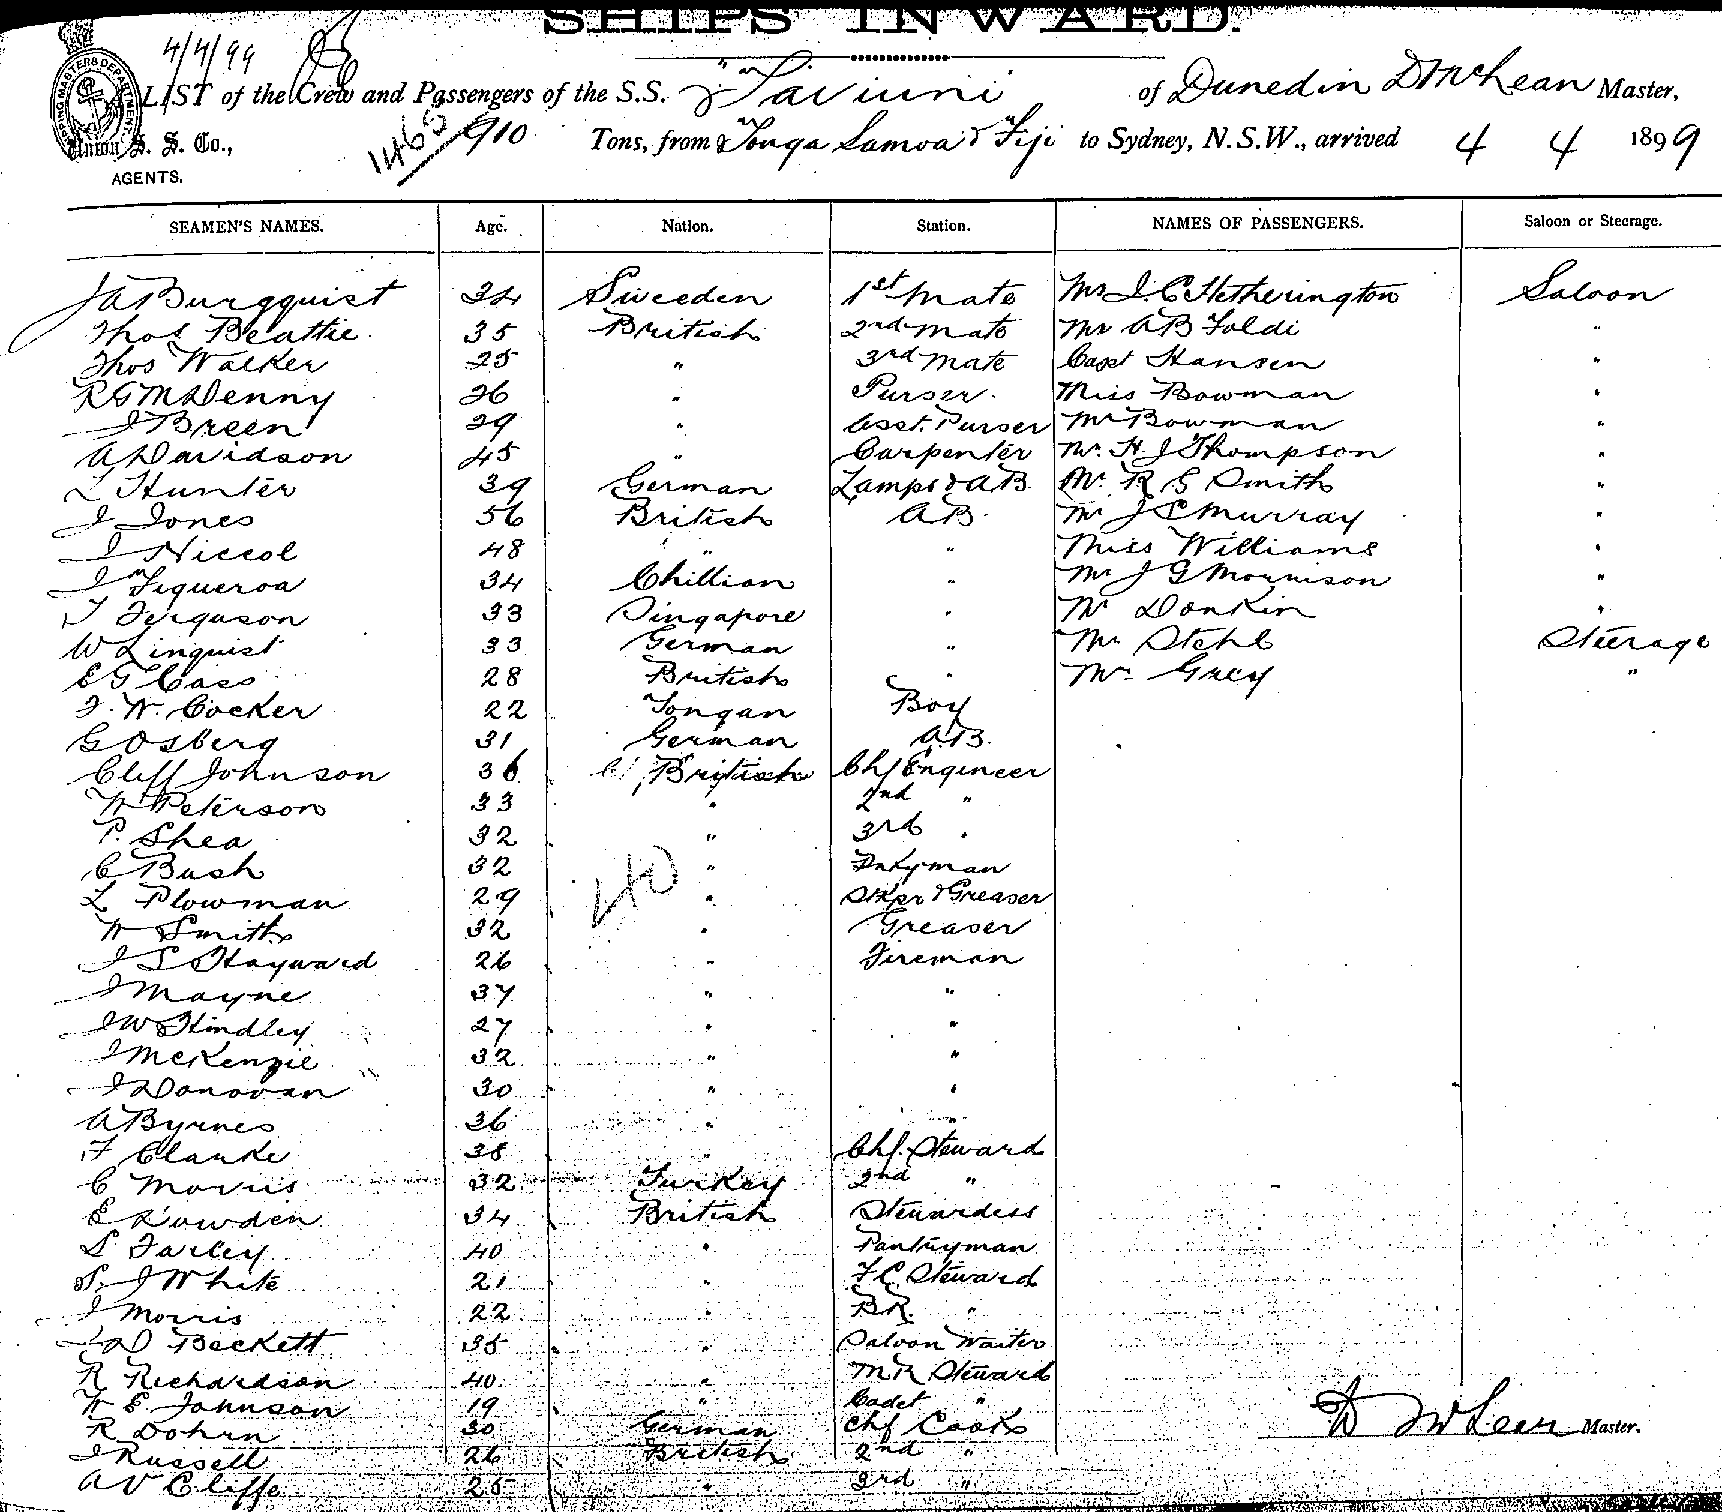 SHIPS INWARD.
4/4/99
SHIPPING MASTERS DEPARTMENT
LIST of the Crew and Passengers of the S.S. "Taviuni of Dunedin D McLean Master,
Union S. S. Co., 1465 / 910 Tons, from Tonga Samoa & Fiji to Sydney, N.S.W., arrived 4 4 1899
AGENTS.
SEAMEN'S NAMES. Age. Nation. Station. NAMES OF PASSENGERS. Saloon or Steerage.
JA Burgquist 34 Sweeden 1st Mate Mr J. C Hetherington Saloon
Thos Beattie 35 British 2nd Mate Mr A B Foldi "
Thos Walker 25 " 3rd Mate Capt Hansen "
R G McDenny 26 " Purser Miss Bowman "
J Breen 29 " Asst. Purser Mr Bowman "
A Davidson 45 " Carpenter Mr. H J Thompson "
L Hunter 39 German Lamps & AB Mr. R G Smith "
J Jones 56 British AB Mr J C Murray "
J Niccol 48 " " Miss Williams "
J Figueroa 34 Chillian " Mr J G Morrison "
T Ferguson 33 Singapore " Mr Donkin "
W Linquist 33 German " Mr Stehl Steerage
E G Cass 28 British " Mr Grey "
F. W. Cocker 22 Tongan Boy
G Osberg 31 German AB.
Cliff Johnson 36 British Chf Engineer
W Peterson 33 " 2nd "
P. Shea 32 " 3rd "
C Bush 32 " Dnkyman
L Plowman 29 " Stkpr & Greaser
40
W Smith 32 " Greaser
J S Hayward 26 " Fireman
J Mayne 37 " "
J W Hindley 27 " "
J McKenzie 32 " "
J Donovan 30 " "
A Byrnes 36 " "
F Clarke 38 " Chf. Steward
C Morris 32 Turkey 2nd "
E Dowden 34 British Stewardess
S Farley 40 " Pantryman
S. J White 21 " F.C. Steward
J Morris 22 " BR. "
J D Beckett 35 " Saloon Waiter
R Richardson 40 " MR Steward
W E Johnson 19 " Cadet "
R Dohrn 30 German Chf Cook
D McLean Master.
J Russell 26 British 2nd "
A V Cliffe 25 " 3rd "